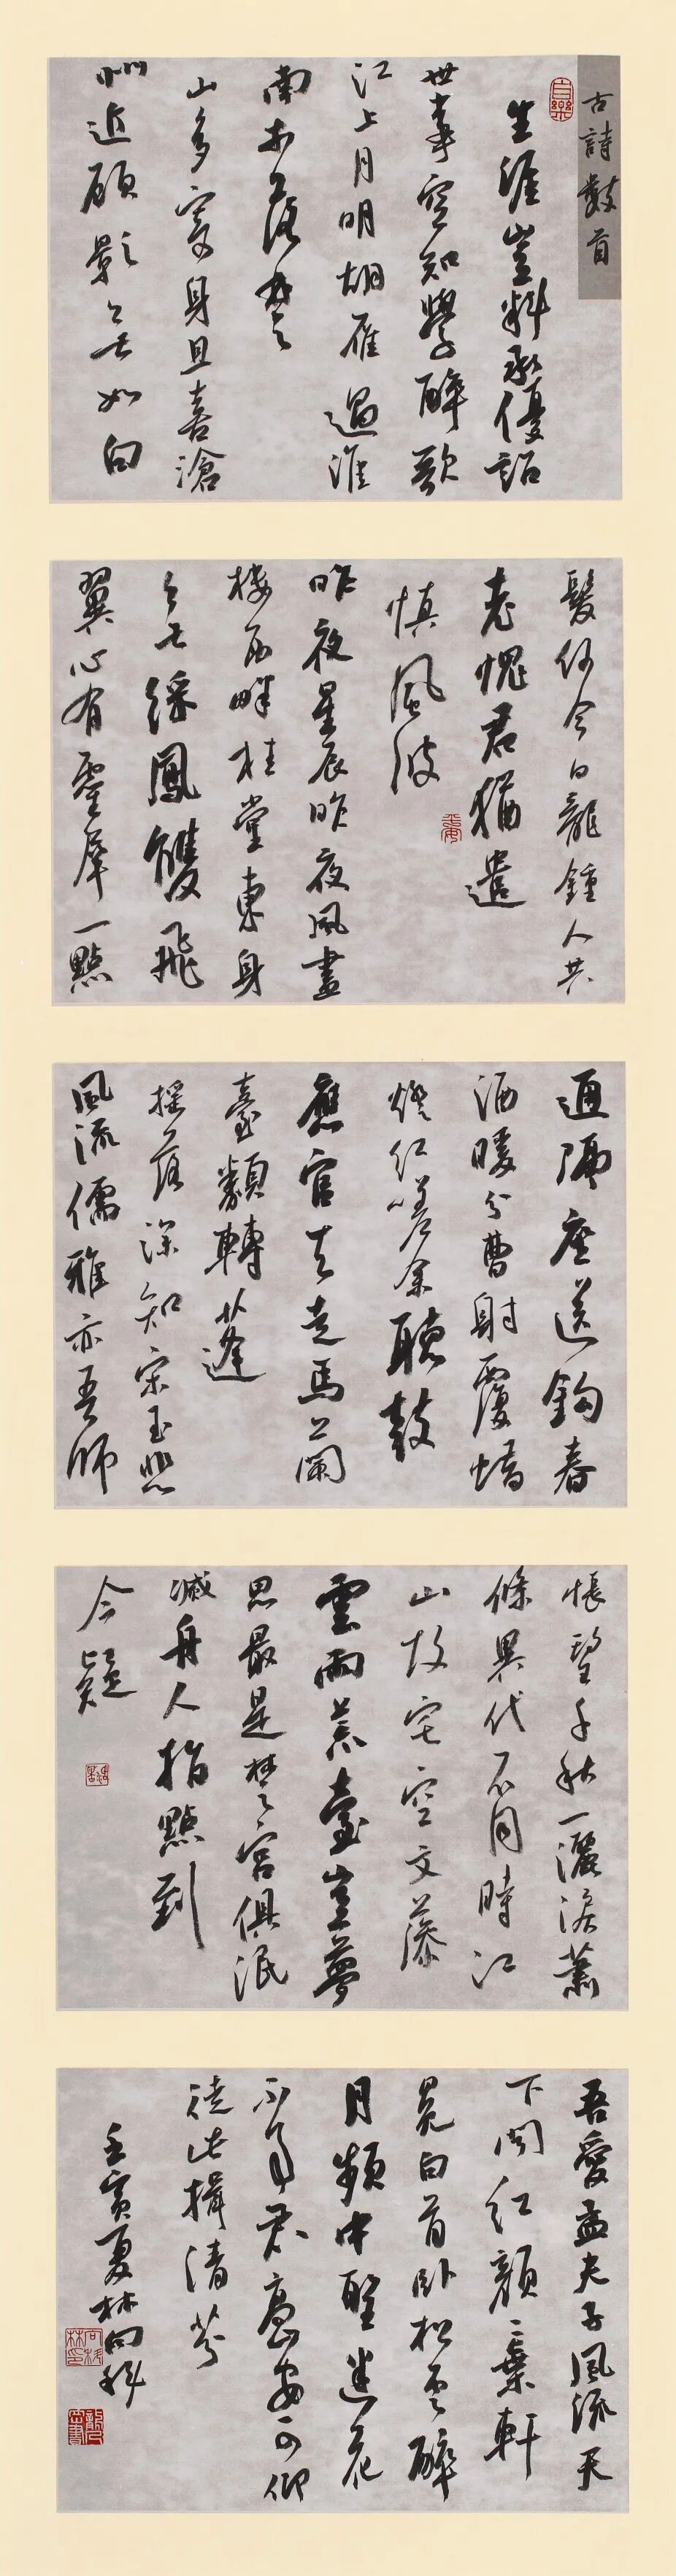 古詩數首
生涯豈料承優詔
世事空知學醉歌
江上月明胡雁過淮
南木落楚
山多寄身且喜滄
洲近顧影無如白
髮何今日龍鍾人共
老愧君猶遣
慎風波
昨夜星辰昨夜風畫
樓西畔桂堂東身
無綵鳳雙飛
翼心有靈犀一點
通隔座送鈎春
酒暖分曹射覆蠟
燈紅嗟余聽鼓
應官去走馬蘭
臺類轉蓬
搖落深知宋玉悲
風流儒雅亦吾師
悵望千秋一灑淚蕭
條異代不同時江
山故宅空文藻
雲雨荒臺豈夢
思最是楚宮俱泯
滅舟人指點到
今疑
吾愛孟夫子風流天
下聞紅顏棄軒
冕白首臥松雲醉
月頻中聖迷花
不事君高山安可仰
徒此揖清芬
壬寅夏林向